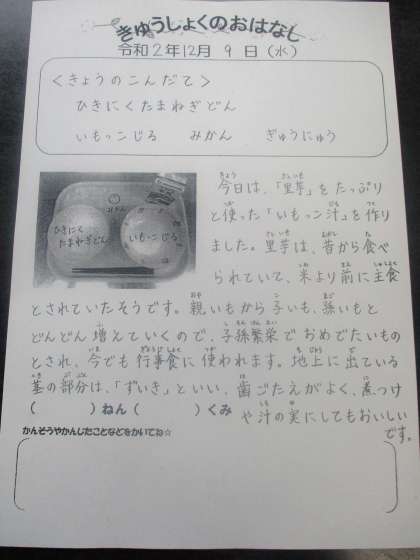 きゅうしょくのおはなし
令和2年12月 9日(水)
<きょうのこんだて>
ひきにくたまねぎどん
いもっこじる みかん ぎゅうにゅう
みかん
ひきにく
たまねぎどん
いもっこじる
今日は、「里芋」をたっぷり
と使った「いもっこ汁」を作り
ました。里芋は、昔から食べ
られていて、米より前に主食
とされていたそうです。親いもから子いも、孫いもと
どんどん増えていくので、子孫繁栄でおめでたいもの
とされ、今でも行事食に使われます。地上に出ている
茎の部分は、「ずいき」といい、歯ごたえがよく、煮つけ
や汁の実にしてもおいしい
です。
( )ねん( )くみ
かんそうやかんじたことなどをかいてね☆